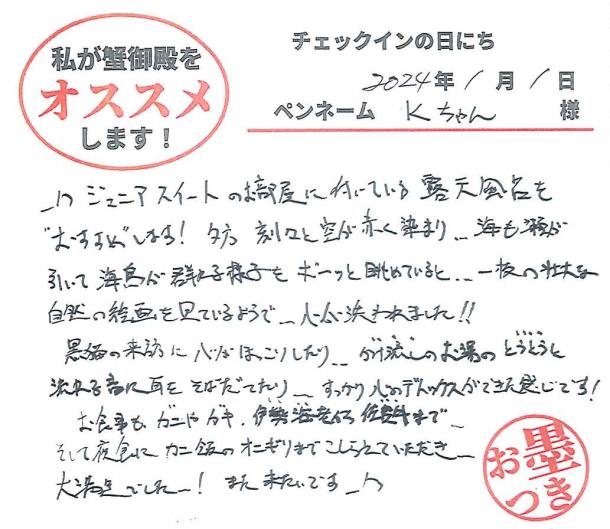 私が蟹御殿を
オススメ
します!
チェックインの日にち
2024年1月1日
ペンネーム Kちゃん 様
ジュニアスイートのお部屋に付いている露天風呂を
"おすすめ"します! 夕方 刻々と空が赤く染まり… 海も潮が
引いて海鳥が群れる様子をボーッと眺めていると… 一枚の壮大な
自然の絵画を見ているようで… 心が洗われました!!
黒猫の来訪に心がほっこりしたり… 掛け流しのお湯のとうとうと
流れる音に耳をそばだてたり… すっかり心のデトックスができた感じです!
お食事もガニやカキ、伊勢海老から佐賀牛まで…
そして夜食にカニ飯のオニギリまでこしらえていただき…
大満足でした…! また来たいです…
お墨つき